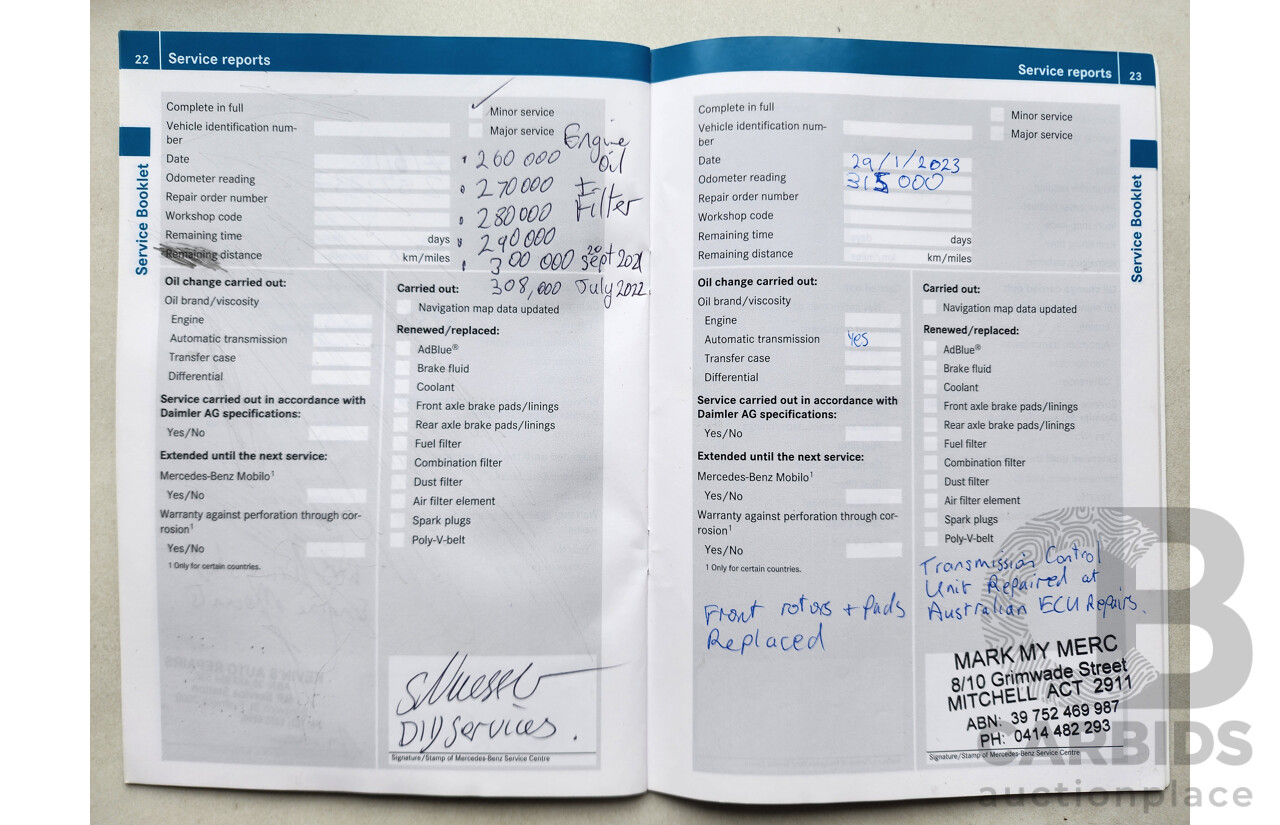 22 Service reports
Complete in full
Minor service
Vehicle identification num-
ber
Major service
Engine
Oil
Date
260 000
Odometer reading
270000
Filter
Repair order number
280000
Workshop code
290000
Remaining time
days
300 000 20 Sept 2021
Remaining distance
km/miles
308,000 July 2022
Oil change carried out:
Oil brand/viscosity
Engine
Automatic transmission
Transfer case
Differential
Service carried out in accordance with
Daimler AG specifications:
Yes/No
Extended until the next service:
Mercedes-Benz Mobilo1
Yes/No
Warranty against perforation through cor-
rosion1
Yes/No
1 Only for certain countries.
Carried out:
Navigation map data updated
Renewed/replaced:
AdBlue®
Brake fluid
Coolant
Front axle brake pads/linings
Rear axle brake pads/linings
Fuel filter
Combination filter
Dust filter
Air filter element
Spark plugs
Poly-V-belt
Services.
Signature/Stamp of Mercedes-Benz Service Centre
Service Booklet
Service reports 23
Complete in full
Minor service
Vehicle identification num-
ber
Major service
Date
29/1/2023
Odometer reading
315 000
Repair order number
Workshop code
Remaining time
days
Remaining distance
km/miles
Oil change carried out:
Oil brand/viscosity
Engine
Automatic transmission
Yes
Transfer case
Differential
Service carried out in accordance with
Daimler AG specifications:
Yes/No
Extended until the next service:
Mercedes-Benz Mobilo1
Yes/No
Warranty against perforation through cor-
rosion1
Yes/No
1 Only for certain countries.
Front rotors + Pads
Replaced
Carried out:
Navigation map data updated
Renewed/replaced:
AdBlue®
Brake fluid
Coolant
Front axle brake pads/linings
Rear axle brake pads/linings
Fuel filter
Combination filter
Dust filter
Air filter element
Spark plugs
Poly-V-belt
Transmission Control
Unit Repaired at
Australian ECU Repairs.
MARK MY MERC
8/10 Grimwade Street
MITCHELL ACT 2911
ABN: 39 752 469 987
PH: 0414 482 293
Signature/Stamp of Mercedes-Benz Service Centre
Service Booklet
CARBIDS
auctionplace